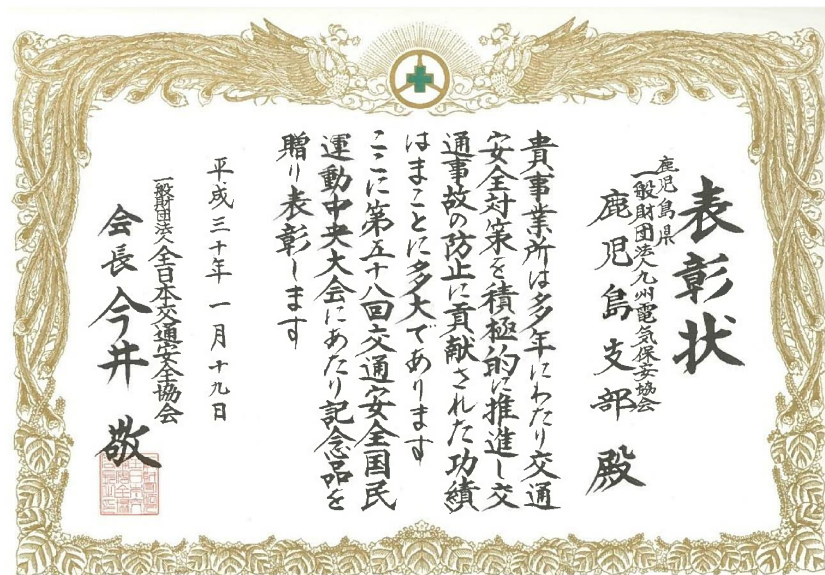 表彰状
鹿児島県
一般財団法人九州電気保安協会
鹿児島支部 殿
貴事業所は多年にわたり交通
安全対策を積極的に推進し交
通事故の防止に貢献された功績
はまことに多大であります
ここに第五十八回交通安全国民
運動中央大会にあたり記念品を
贈り表彰します
平成三十年一月十九日
一般財団法人全日本交通安全協会
会長 今井 敬